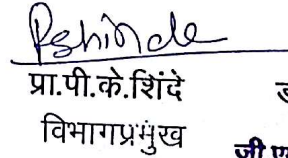 Pshinde
प्रा.पी.के.शिंदे
विभागप्रमुख
जी